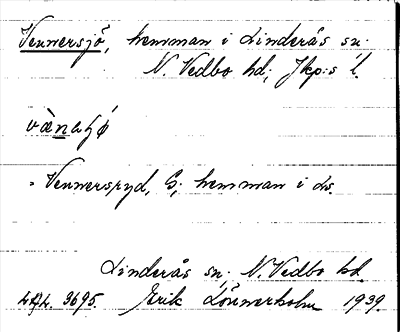 Vennersjö, hemman i Linderås sn.
N. Vedbo hd; Jkp:s l.
vænaʃǿ
= Vennersryd, S; hemman i Ls.
Linderås sn. N. Vedbo hd.
3695. Erik Lönnerholm 1939.